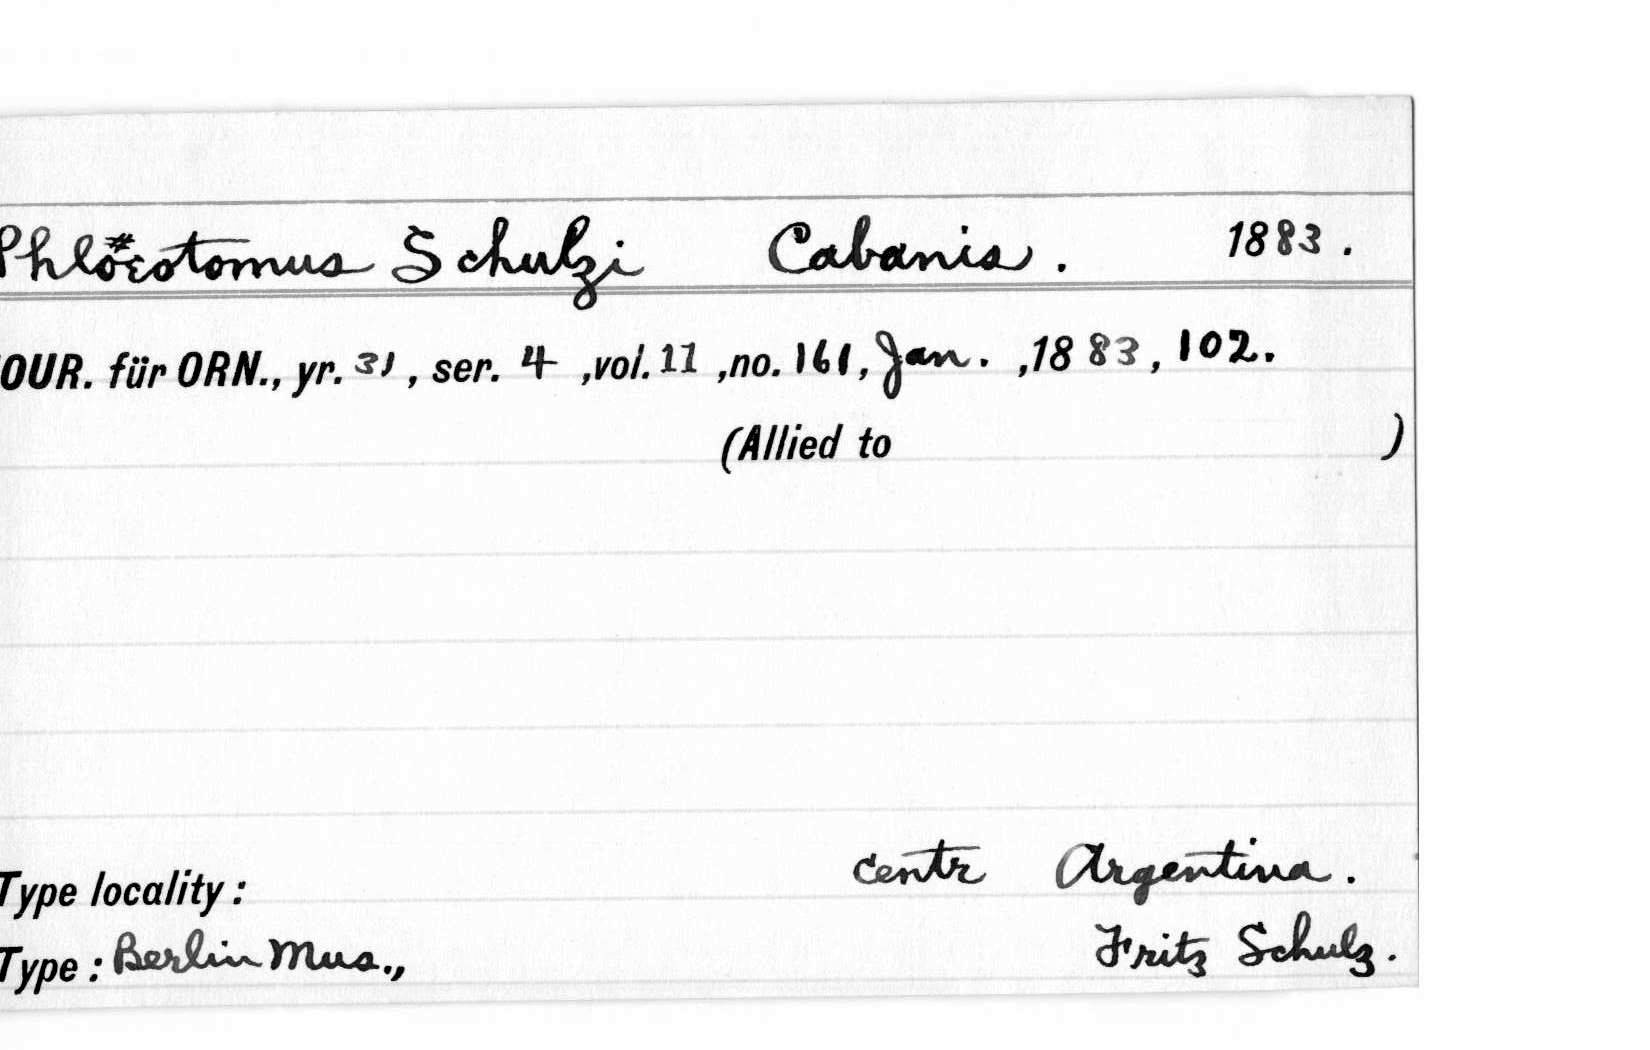 Phlœotomus Schulzi Cabanis. 1883.
OUR. für ORN., yr. 31, ser. 4, vol. 11, no. 161, Jan., 1883, 102.
(Allied to )
Type locality: centr Argentina.
Type: Berlin Mus., Fritz Schulz.